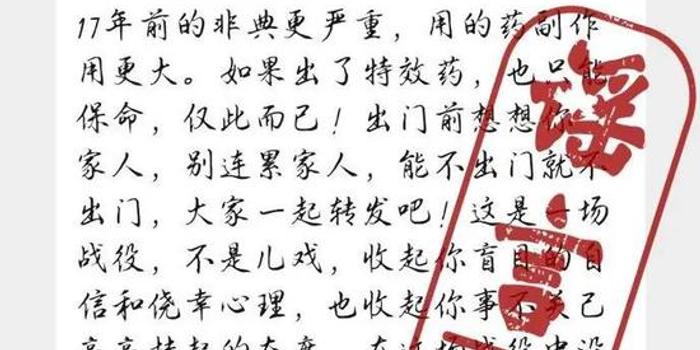 17年前的非典更严重，用的药副作
用更大。如果出了特效药，也只能
保命，仅此而已！出门前想想你
家人，别连累家人，能不出门就不
出门，大家一起转发吧！这是一场
战役，不是儿戏，收起你盲目的自
信和侥幸心理，也收起你事不关己
高高挂起的态度，在这场战役中没
谣言